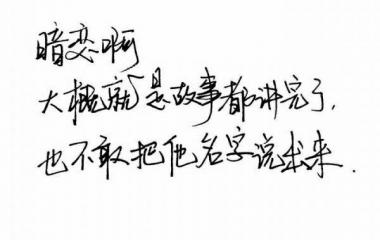 暗恋啊
大概就是故事都讲完了,
也不敢把他名字说出来.